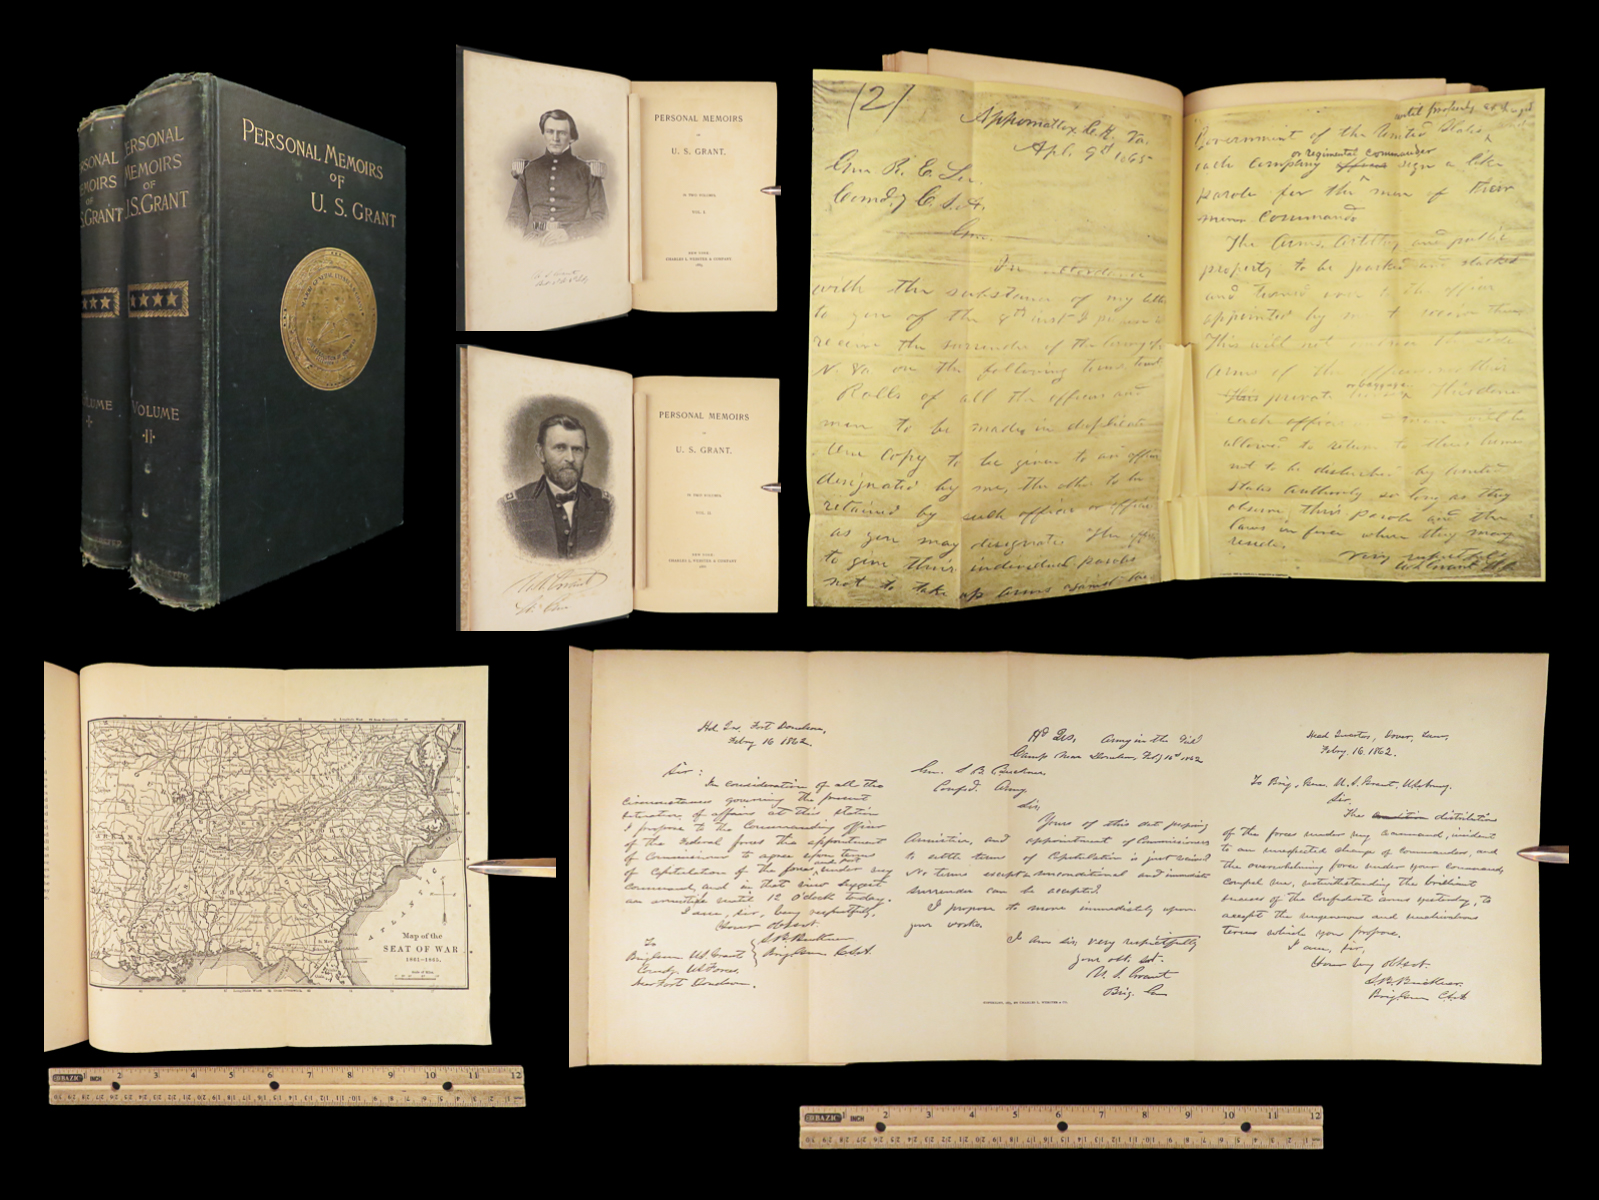 PERSONAL MEMOIRS
OF
U. S. GRANT
VOLUME
I
PERSONAL
MEMOIRS
OF
U.S. GRANT
VOLUME
II
PERSONAL MEMOIRS
OF
U. S. GRANT
PERSONAL MEMOIRS
OF
U. S. GRANT.
IN TWO VOLUMES.
VOL. I.
NEW YORK:
CHARLES L. WEBSTER & COMPANY.
PERSONAL MEMOIRS
OF
U. S. GRANT.
IN TWO VOLUMES.
VOL. II.
NEW YORK:
CHARLES L. WEBSTER & COMPANY.
(2)
Appomattox C.H. Va.
Apl. 9th 1865
Gen. R. E. Lee,
Comd.g C.S.A.
Gen.
In accordance
with the substance of my letter
to you of the 8th inst I propose to
receive the surrender of the Army of
N. Va. on the following terms, towit
Rolls of all the officers and
men to be made in duplicate
One copy to be given to an officer
designated by me, the other to be
retained by such officer or officers
as you may designate. The officers
to give their individual paroles
not to take up arms against the
until properly
Government of the United States
or regimental commander
each company officer sign a like
parole for the men of their
commands
The Arms, Artillery and public
property to be parked and stacked
and turned over to the officer
appointed by me to receive them
This will not embrace the side
Arms of the officers, nor their
or baggage
this private
each officer and man will be
allowed to return to their homes
not to be disturbed by United
States Authority so long as they
observe their parole and the
laws in force where they may
reside.
Very respectfully
U.S. Grant
Map of the
SEAT OF WAR
1861-1865.
ATLANTIC
Hd Qrs, Fort Donelson,
Feby 16 1862.
Sir:
In consideration of all the
circumstances governing the present
situation of affairs at this station
I propose to the Commanding officer
of the Federal forces the appointment
of Commissioners to agree upon terms
of capitulation of the forces and post under my
command, and in that view suggest
an armistice until 12 o'clock today.
I am, sir, very respectfully,
Your obdt. servt.
S. B. Buckner
Brig Gen C.S.A.
To
Brig Gen U.S. Grant
Comdg. U.S. Forces.
Near Fort Donelson.
Hd Qrs, Army in the Field
Camp Near Donelson, Feby 16th 1862
Gen. S. B. Buckner,
Confed. Army,
Sir,
Yours of this date proposing
Armistice, and appointment of Commissioners
to settle terms of Capitulation is just received
No terms except a unconditional and immediate
surrender can be accepted.
I propose to move immediately upon
your works.
I am sir, very respectfully
your obt. svt.
U. S. Grant
Brig. Gen
Head Quarters, Dover, Tenn,
Feby. 16. 1862.
To Brig. Genl. U. S. Grant, U.S. Army.
Sir.
The distribution
of the forces under my command, incident
to an unexpected change of commanders, and
the overwhelming force under your command,
compel me, notwithstanding the brilliant
success of the Confederate arms yesterday, to
accept the ungenerous and unchivalrous
terms which you propose.
I am, sir,
Your very obdt. svt.
S. B. Buckner.
Brig. Gen C.S.A
BAZIC INCH 2 3 4 5 6 7 8 9 10 11 12
BAZIC 1 INCH 2 3 4 5 6 7 8 9 10 11 12